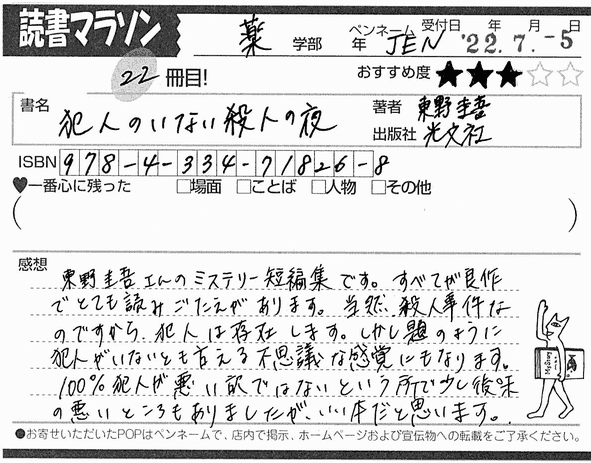 読書マラソン
薬 学部 年 ペンネーム JEN 受付日 年 月 日 '22.7.-5
22 冊目! おすすめ度 ★★★☆☆
書名 犯人のいない殺人の夜 著者 東野圭吾
出版社 光文社
ISBN 978-4-334-71826-8
♥一番心に残った □場面 □ことば □人物 □その他
( )
感想
東野圭吾さんのミステリー短編集です。すべてが良作
でとても読みごたえがあります。当然、殺人事件な
のですから、犯人は存在します。しかし題のように
犯人がいないとも言える不思議な感覚にもなります。
100%犯人が悪い訳ではないという所で少し後味
の悪いところもありましたが、いい本だと思います。
●お寄せいただいたPOPはペンネームで、店内で掲示、ホームページおよび宣伝物への転載をご了承ください。